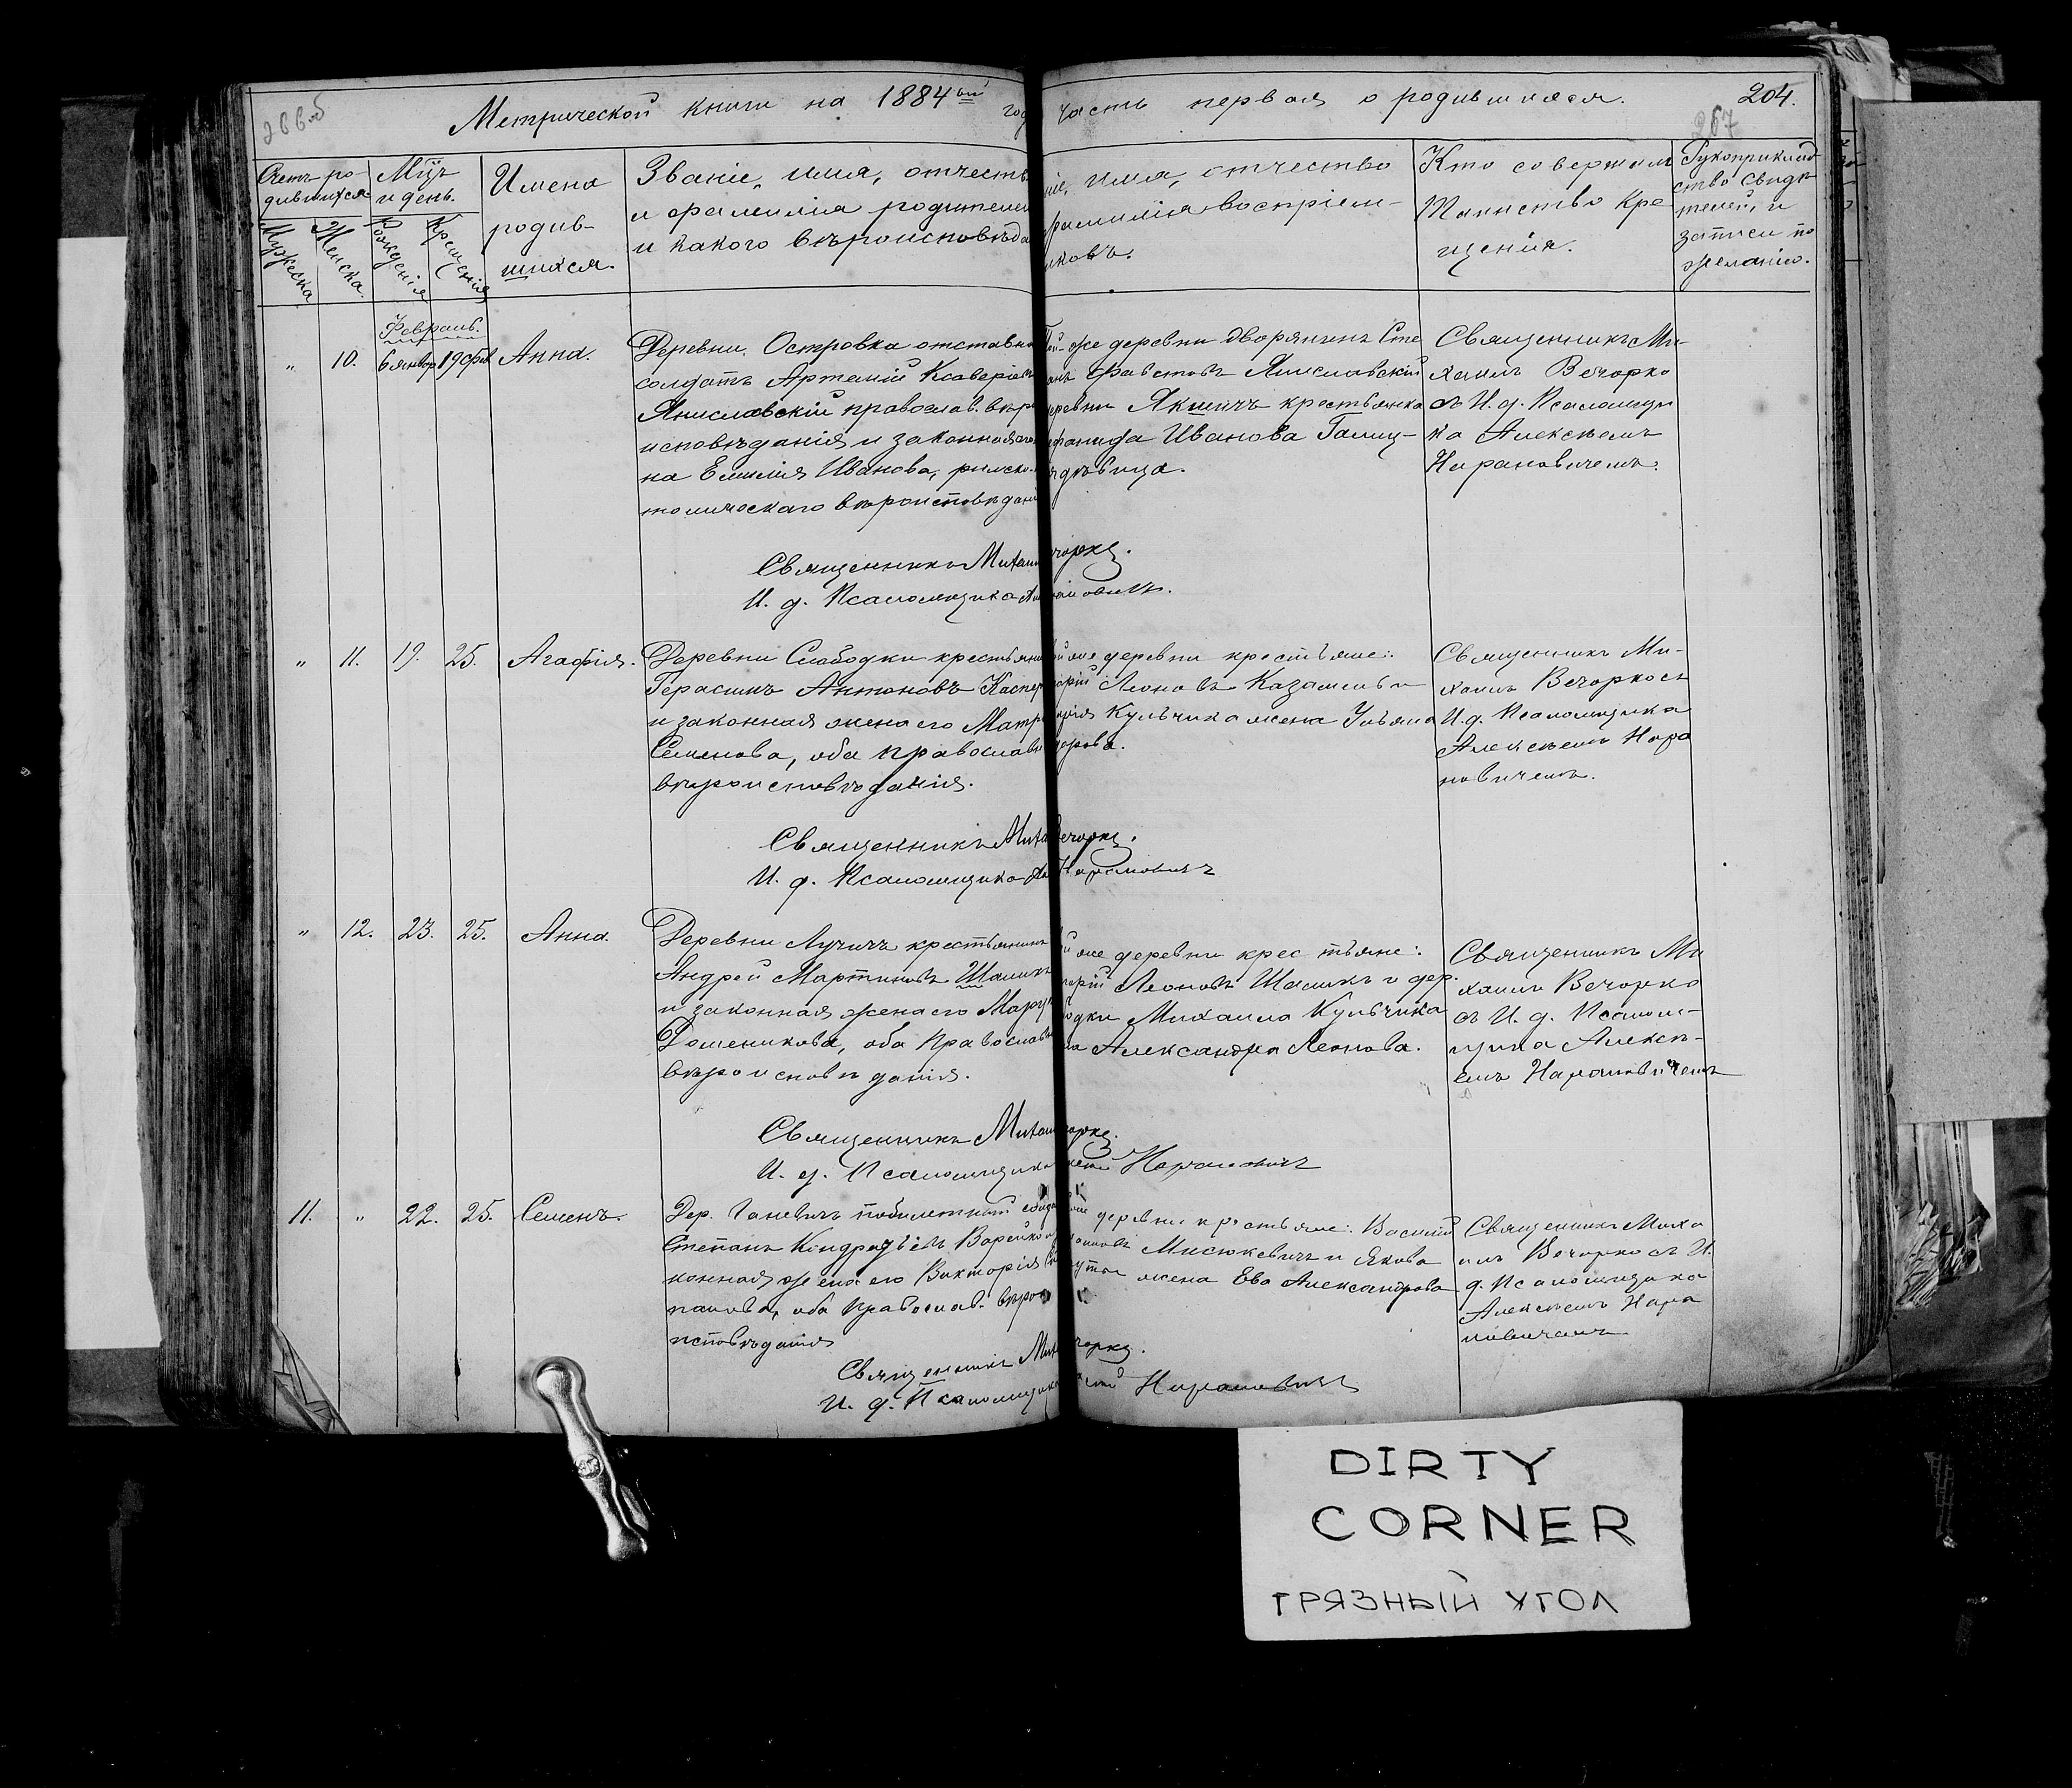 Метрической книги на 1884ый год часть первая о родившихся. 204.
267
Счетъ ро-
дившихся
Мужеска
Женска.
Мцъ
и день.
Рожденія
Крещенія
Имена
родив-
шихся.
Званіе, имя, отчеств
и фамилія родителей
и какого вѣроисповѣда
имя, отчество
фамилія воспріем-
никовъ.
Кто совершил
Таинство Кре
щенія.
Рукоприклад
ство свидѣ
телей и
записи по
желанію.
Февраль.
" 10. 6 январ 19 фев Анна.
Деревни Островка отставн
солдатъ Артемій Ксаверіевъ
Яниславскій православ. вѣро
исповѣданія и законная его
на Емилія Иванова, римско
толическаго вѣроисповѣдан
Той-же деревни дворянинъ Сте
анъ Фавстовъ Яниславскій
деревни Якшичъ крестьянка
Иванова
дѣвица.
Священникъ Ми-
хаилъ Вечорко
съ И. д. Псаломщи
ка Алексѣемъ
Нарановичемъ.
Священникъ Михаи чорко.
И. д. Псаломщика
" 11. 19. 25. Агафія.
Деревни Слободки крестьянин
Герасимъ Антоновъ Каспер
и законная жена его Матр
Семенова, оба православн
вѣроисповѣданія.
же деревни крестьяне:
Леоновъ
Кульчика жена Ульяна
Священникъ Ми-
хаилъ Вечорко съ
И. д. Псаломщика
Алексѣемъ Нара
новичемъ.
Священникъ Миха Вечорко.
И. д. Псаломщика Ал Нарановичъ
" 12. 23. 25. Анна.
Деревни Лучичъ крестьянинъ
Андрей Мартиновъ Шашикъ
и законная жена его Мар
Доменикова, оба Православн
вѣроисповѣданія.
й же деревни крестьяне:
Леоновъ Шашикъ и дер.
одки Михаила Кульчика
на Александра Леонова.
Священникъ Ми
хаилъ Вечорко
съ И. д. Псалом-
щика Алексѣ-
емъ Нарановичемъ
Священникъ Михаи чорко.
И. д. Псаломщика Нарановичъ
11. " 22. 25. Семенъ.
Дер. Ганевичъ побилетный солда
Степанъ Кондратьевъ Варейко и
конная жена его Викторія
оба Православ. вѣро
исповѣданія
деревни крестьяне: Василій
Мисюкевичъ и Якова
жена Ева Александрова
Священникъ Миха
илъ Вечорко съ И.
д. Псаломщика
Алексѣемъ Нара
новичемъ
Священникъ Миха чорко.
И. д. Псаломщика Нарановичъ
DIRTY
CORNER
ГРЯЗНЫЙ УГОЛ